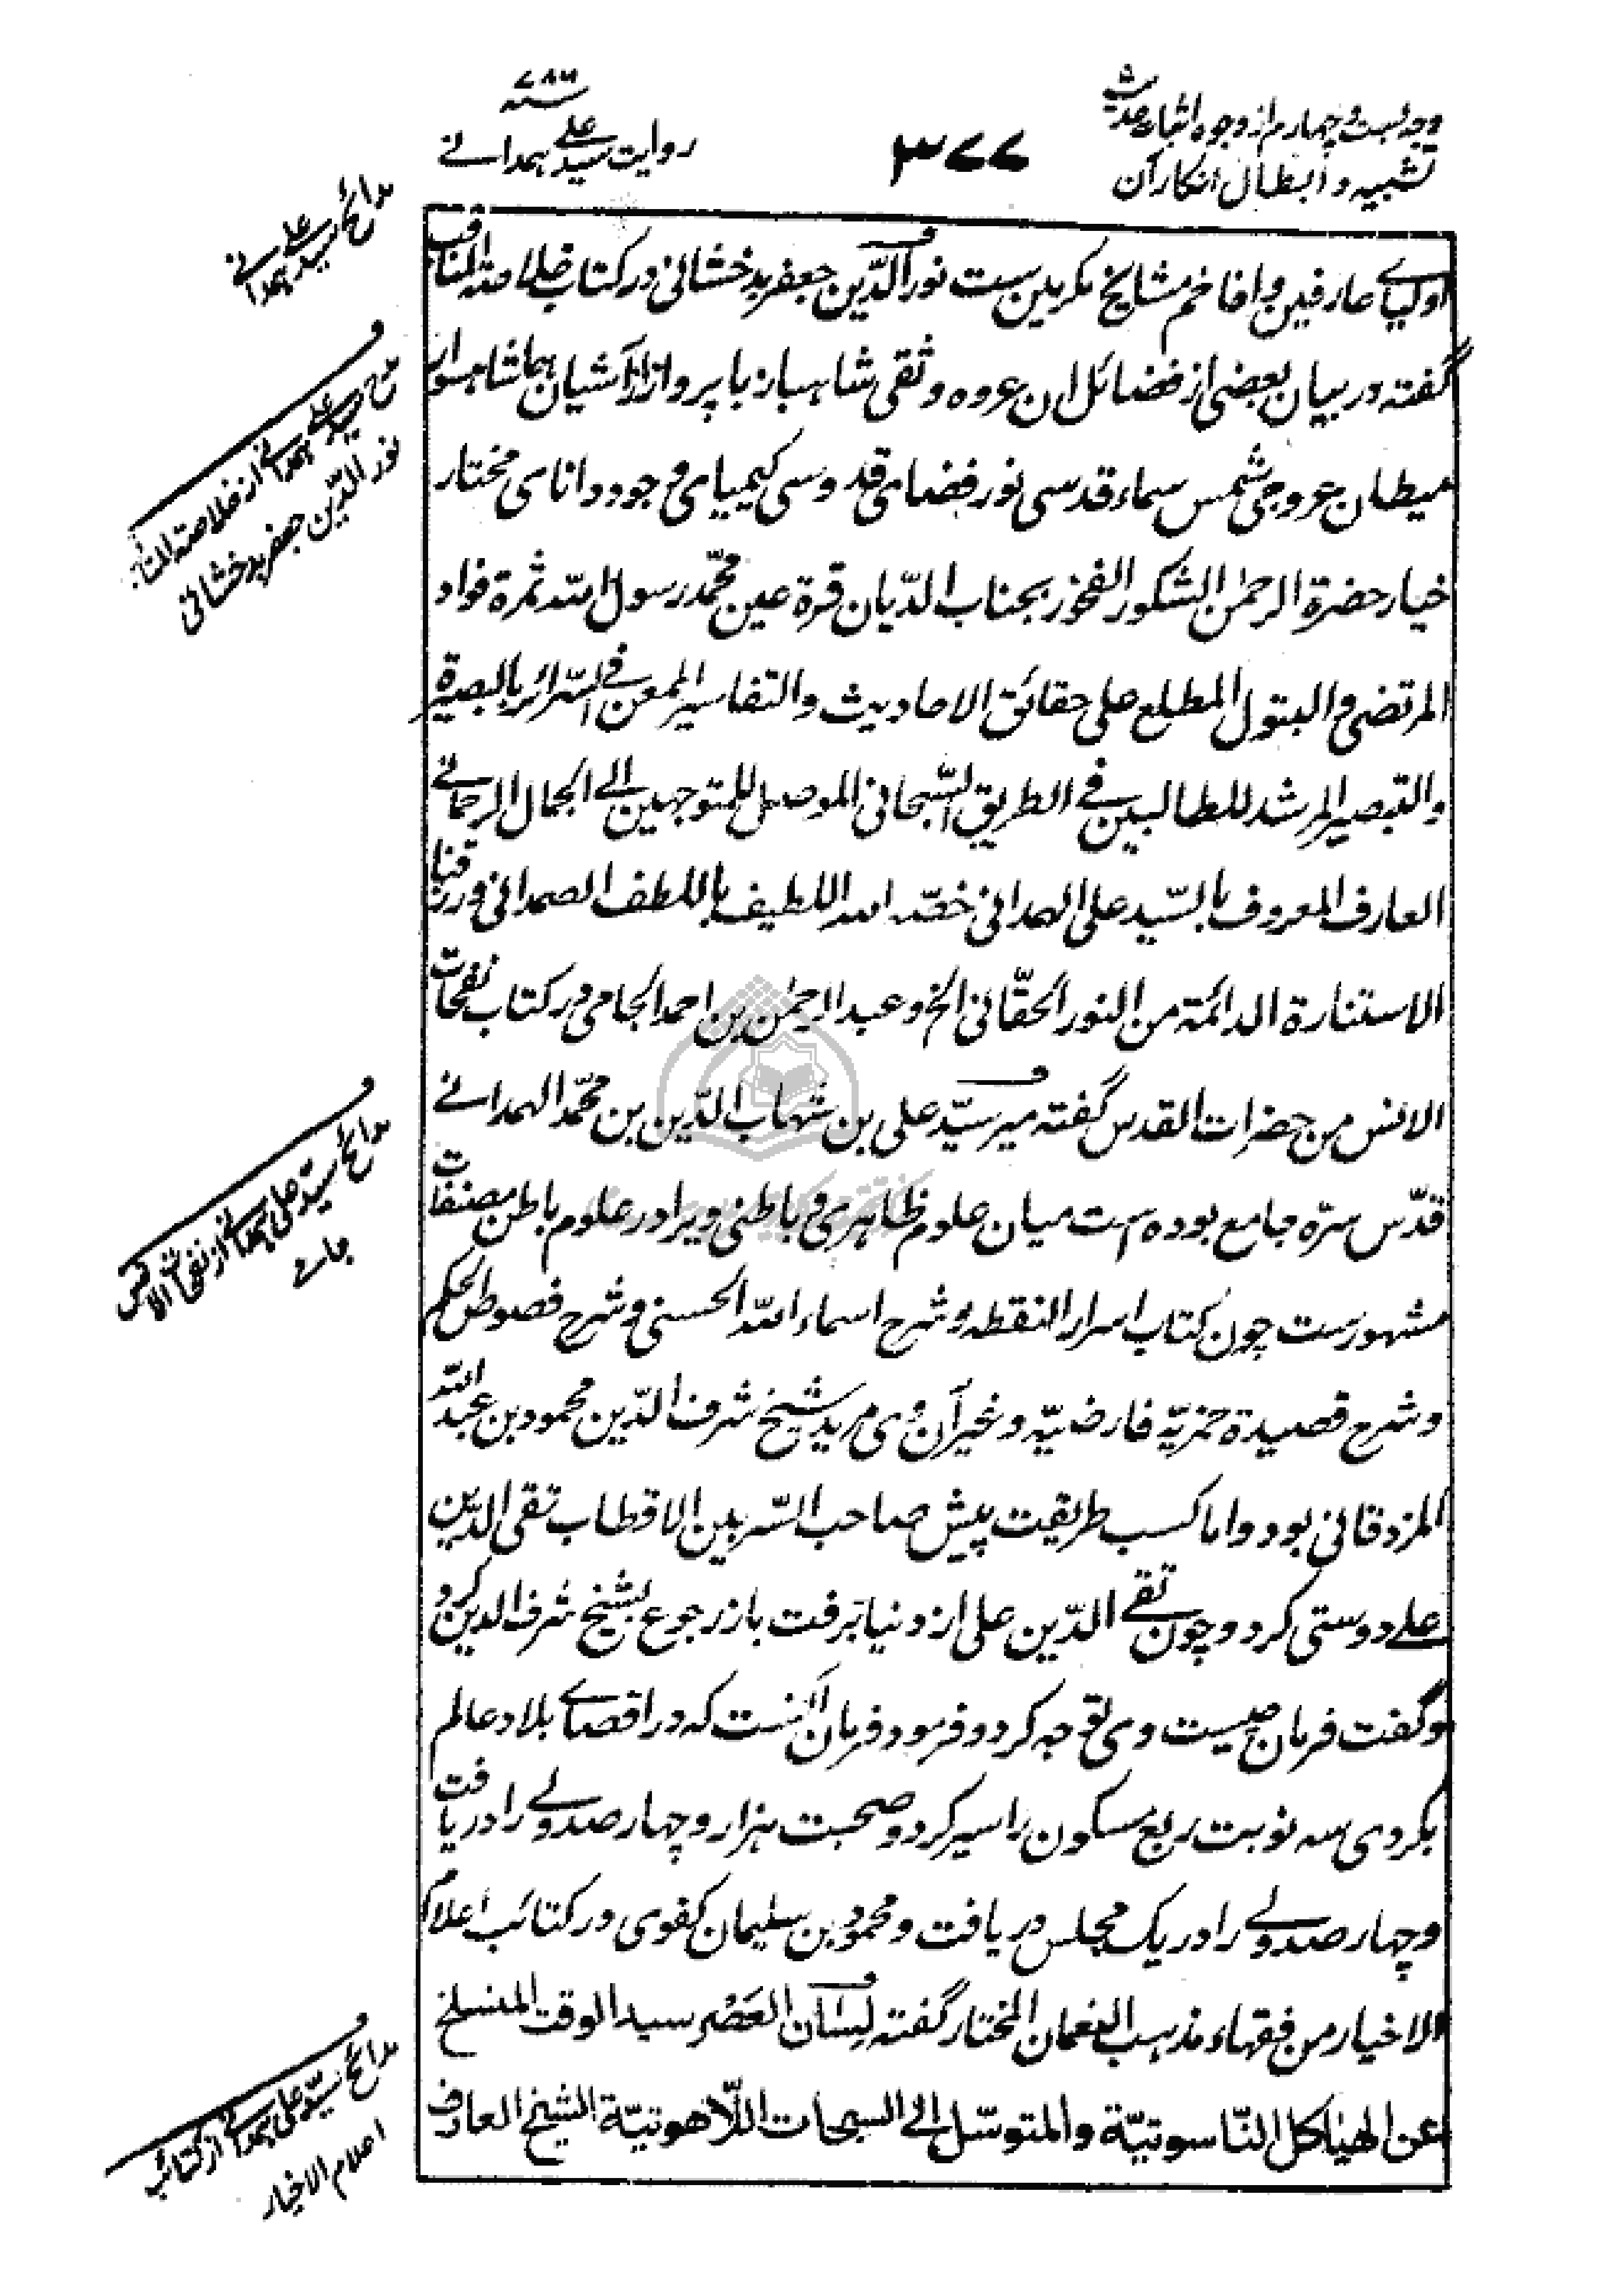 وجه بست و چهارم از وجوه اثبات حدیث
تشبیه و ابطال انکار آن
۳۷۷
سنه ۷۸۶
روایت سید علی همدانے
مدائح سید علی همدانے
اولیاے عارفین و افاخم مشایخ مکرمین ست نور الدّین جعفر بدخشانی در کتاب خلاصة المناقب
گفته در بیان بعضی از فضائل ان عروه وثقی شاهباز با پرواز از آشیان هما شاهسوار
میطان عروجی شمس سماء قدسی نور فضای قدوسی کیمیای وجود دانای مختار
خیار حضرة الرحمٰن الشکور الفخور بجناب الدّیان قرة عین محمّد رسول اللّه ثمرة فواد
المرتضی و البتول المطلع علی حقائق الاحادیث و التفاسیر الممعن فی السّرائر بالبصیرة
و التبصیر المرشد للطالبین فے الطریق السّبحانی الموصل للمتوجهین الے الجمال الرحمانے
العارف المعروف بالسّید علی الهمدانی خصّه الله اللطیف باللطف الصمدانی و رزقنا
الاستنارة الدائمة من النور الحقّانی الخ و عبد الرحمٰن بن احمد الجامی در کتاب نفحات
الانس من حضرات القدس گفته میر سیّد علی بن شهاب الدّین بن محمّد الهمدانے
قدّس سرّه جامع بوده ست میان علوم ظاهری و باطنی ویرا در علوم باطن مصنفات
مشهورست چون کتاب اسرار النقطه و شرح اسماء اللّه الحسنی و شرح فصوص الحکم
و شرح قصیدة خمریّه فارضیّه و غیر آن وی مرید شیخ شرف الدّین محمود بن عبد اللّه
المزدقانی بود و اما کسب طریقت پیش صاحب السّر بین الاقطاب تقی الدّین
علے دوستی کرد و چون تقے الدّین علی از دنیا برفت باز رجوع بشیخ شرف الدین کرد
و گفت فرمان چیست وی توجه کرد و فرمود فرمان آنست که در اقصاے بلاد عالم
بگردی سه نوبت ربع مسکون را سیر کرد و صحبت هزار و چهار صد ولے را دریافت
و چهار صد ولے را در یک مجلس دریافت و محمود بن سلیمان کفوی در کتائب اعلام
الاخیار من فقهاء مذهب النعمان المختار گفته لِسَان العَصْر سید الوقت المنسلخ
عن الهیاکل النّاسوتیّة و المتوسّل الی السبحات اللّاهوتیّة الشیخ العارف
مدح سید علے همدانے از خلاصة المناقب
نور الدّین جعفر بدخشانی
مدائح سیّد علی همدانے از نفحات الانس
جامے
مدائح سیّد علی همدانے از کتائب
اعلام الاخیار